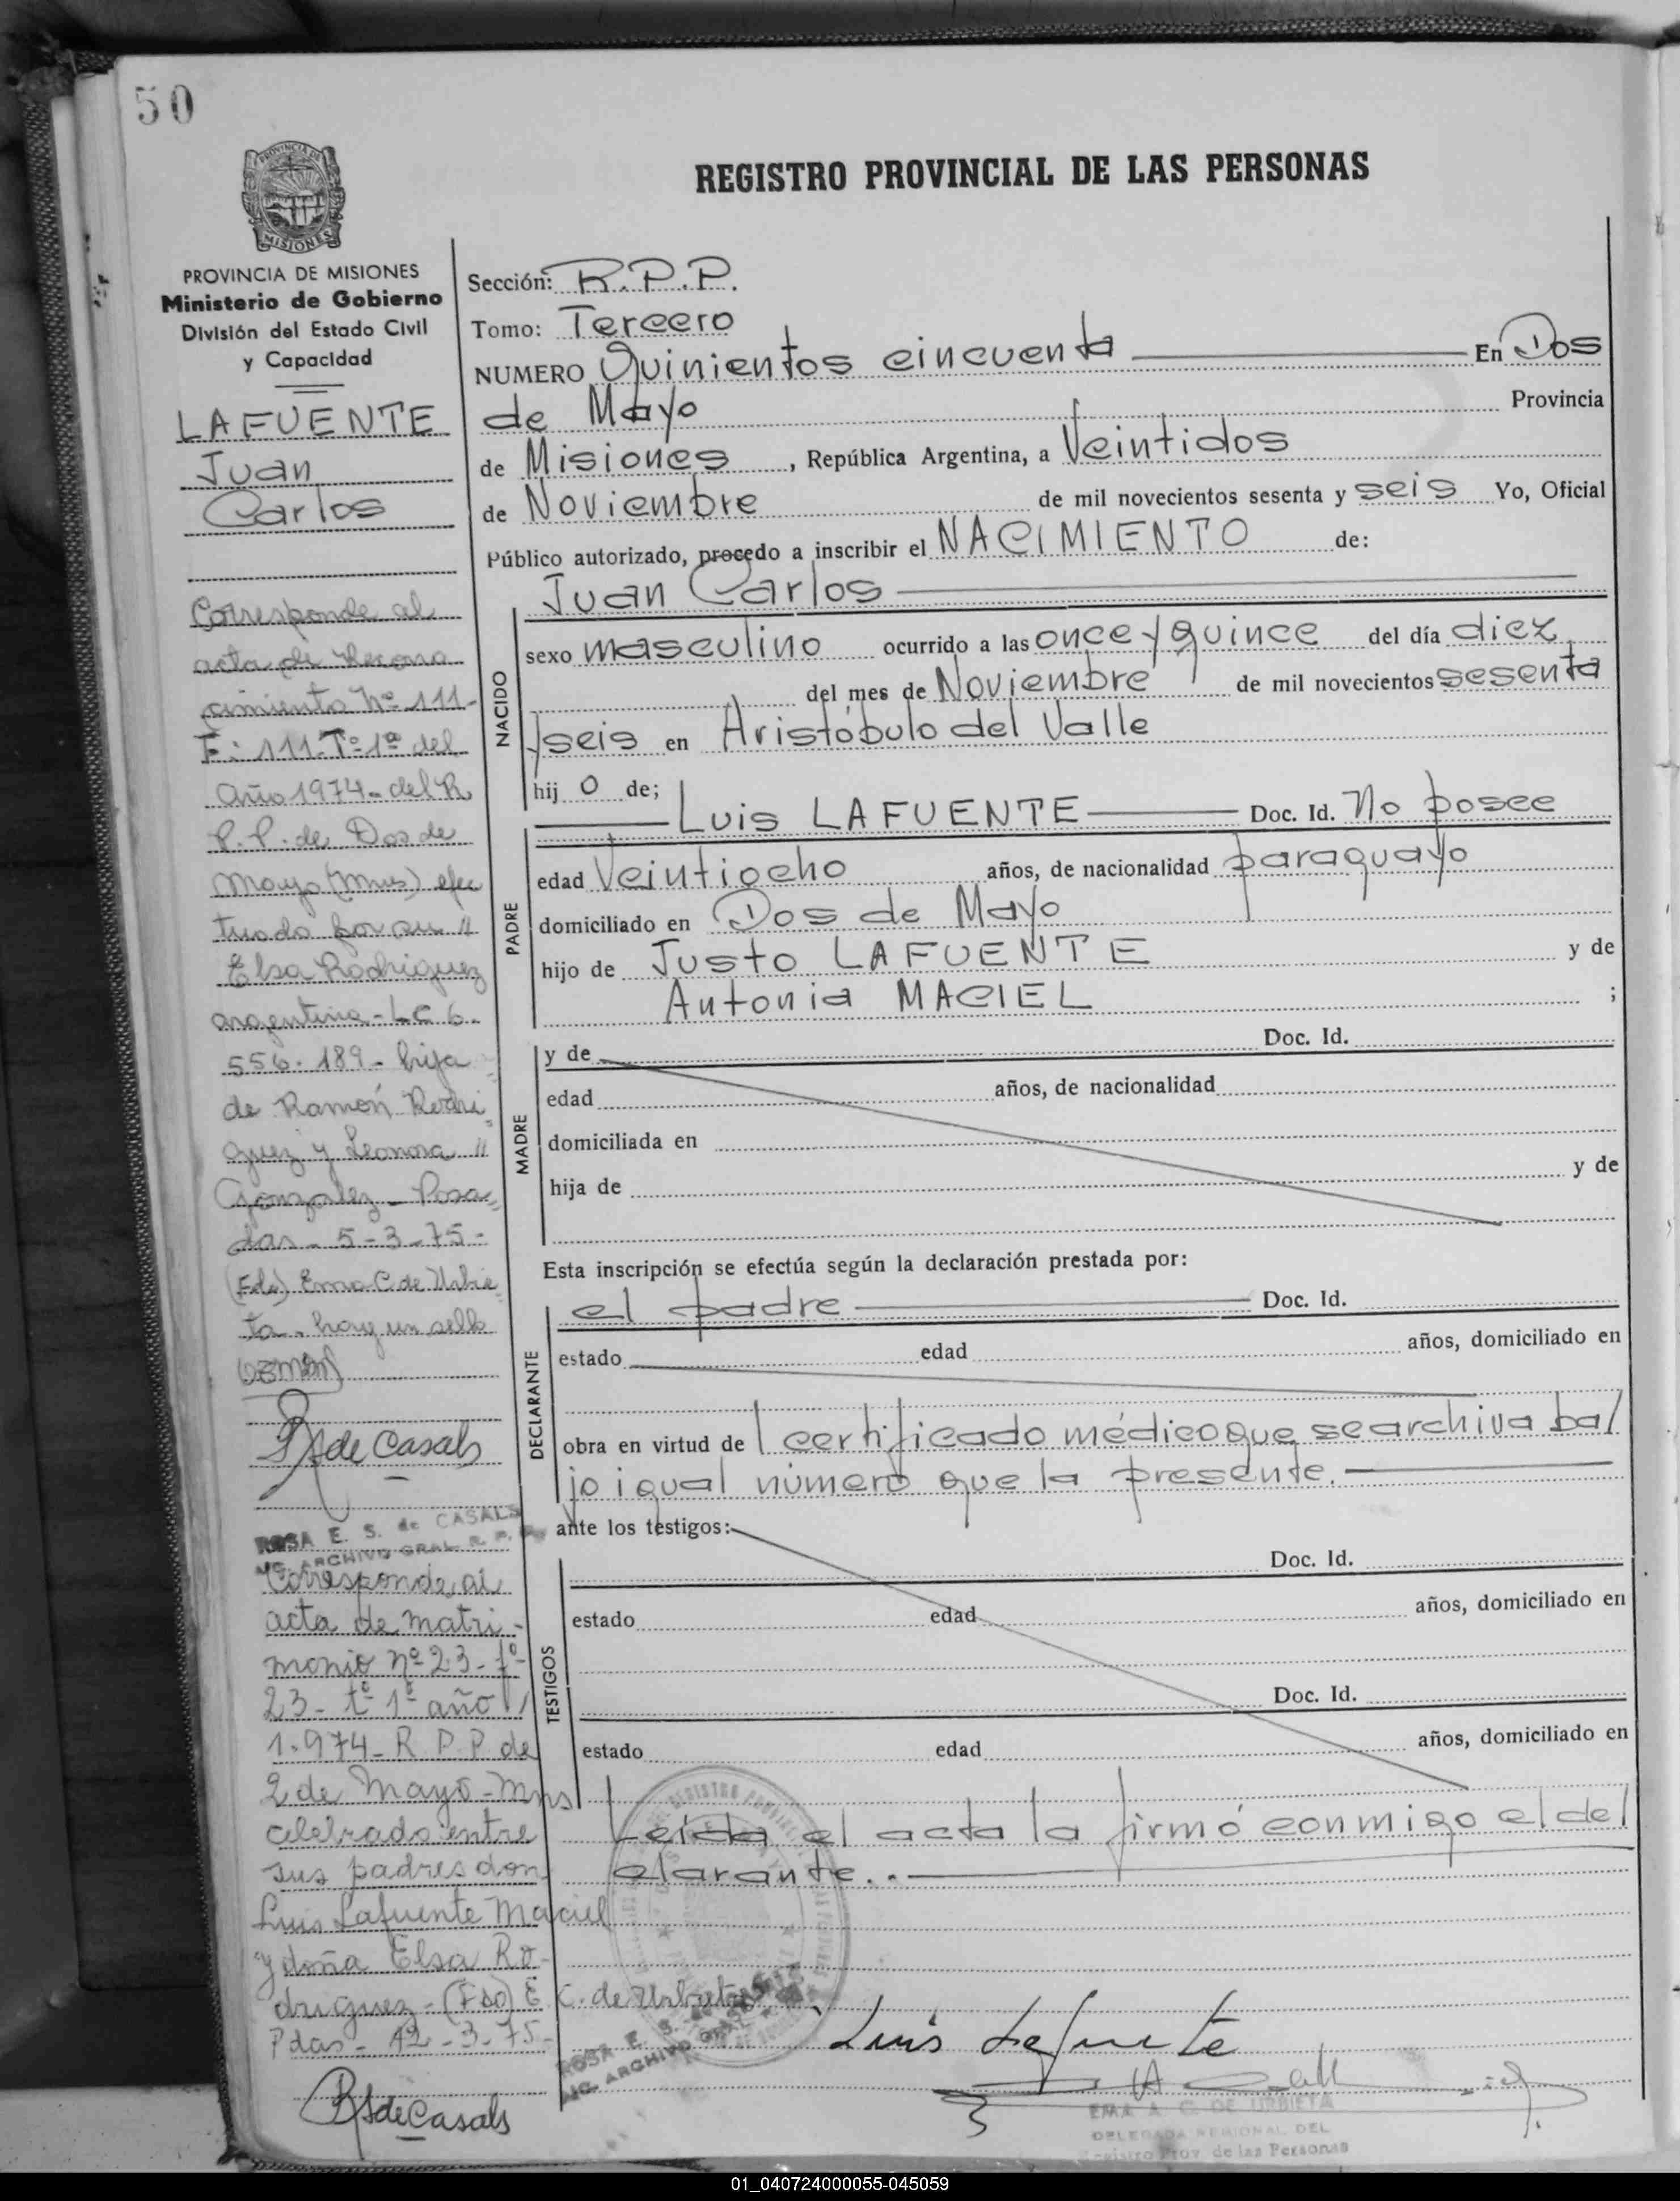 50
PROVINCIA DE
MISIONES
REGISTRO PROVINCIAL DE LAS PERSONAS
PROVINCIA DE MISIONES
Ministerio de Gobierno
División del Estado Civil
y Capacidad
LAFUENTE
Juan
Carlos
Corresponde al
acta de Recono
cimiento Nº 111-
F: 111-Tº 1º del
Año 1974- del R
P.P. de Dos de
Mayo (Mnes) efec
tuado por su "
Elsa Rodriguez
argentina - LC 6.
556.189 - hija
de Ramón Rodri
guez y Leonora "
Gonzalez - Posa
das - 5-3-75-
(Fdo) Ema C de Urbie
ta. hay un sello
R S de Casals
ROSA E. S. de CASALS
ARCHIVO GRAL. R. P.
Corresponde al
acta de matri-
monio nº 23- fº
23- tº 1º año
1.974- R P.P de
2 de Mayo - Mns
celebrado entre
sus padres don
Luis Lafuente Maciel
y doña Elsa Ro-
driguez - (Fdo) E. C. de Urbieta
Pdas - 12-3-75-
R S de Casals
Sección: R.P.P.
Tomo: Tercero
NUMERO Quinientos cincuenta En Dos
de Mayo Provincia
de Misiones, República Argentina, a Veintidos
de Noviembre de mil novecientos sesenta y seis Yo, Oficial
Público autorizado, procedo a inscribir el NACIMIENTO de:
Juan Carlos
NACIDO
sexo masculino ocurrido a las once y quince del día diez
del mes de Noviembre de mil novecientos sesenta
y seis en Aristóbulo del Valle
hij o de;
Luis LAFUENTE Doc. Id. No posee
PADRE
edad Veintiocho años, de nacionalidad paraguayo
domiciliado en Dos de Mayo
hijo de Justo LAFUENTE y de
Antonia MACIEL ;
MADRE
y de Doc. Id.
edad años, de nacionalidad
domiciliada en
hija de y de
Esta inscripción se efectúa según la declaración prestada por:
DECLARANTE
el padre Doc. Id.
estado edad años, domiciliado en
obra en virtud de l certificado médico que se archiva ba/
jo igual número que la presente.
ante los testigos:
TESTIGOS
Doc. Id.
estado edad años, domiciliado en
Doc. Id.
estado edad años, domiciliado en
Leída el acta la firmó conmigo el de/
clarante..
ROSA E. S.
ARCHIVO GRAL.
Luis Lafuente
EMA A. C. DE URBIETA
DELEGADA REGIONAL DEL
Registro Prov. de las Personas
01_040724000055-045059